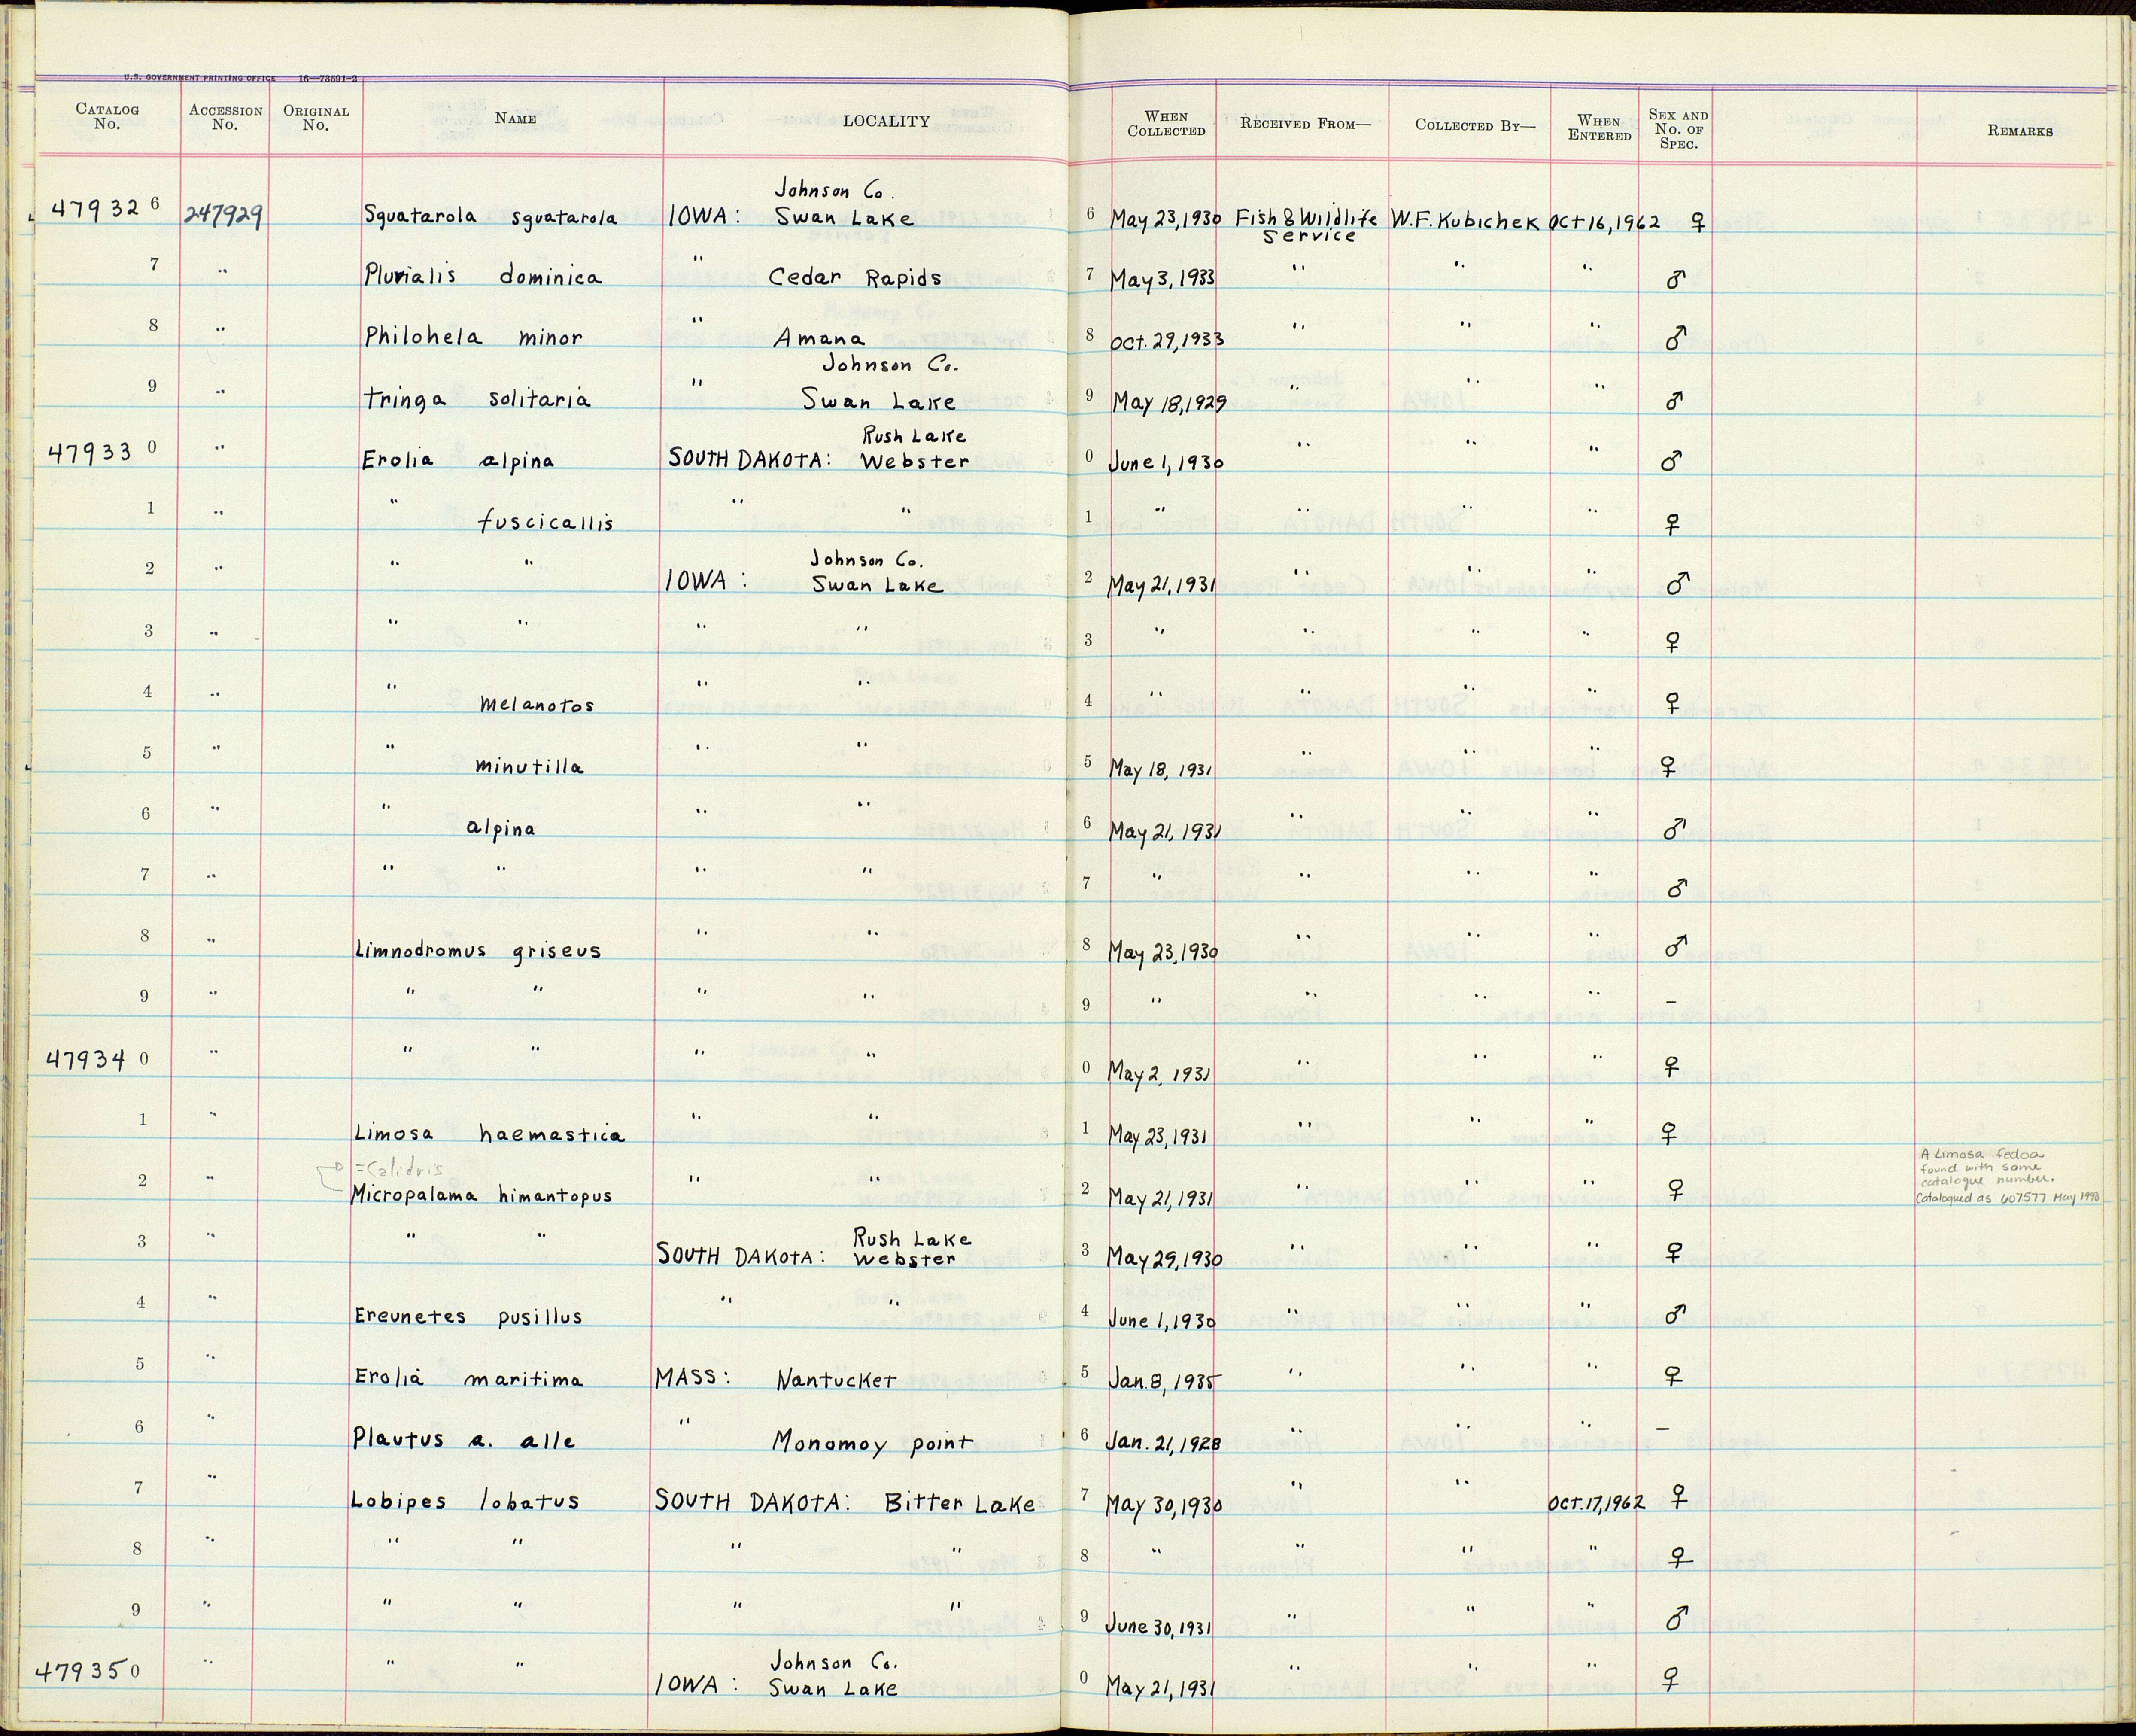 U.S. GOVERNMENT PRINTING OFFICE 16—73591-2
CATALOG No. ACCESSION No. ORIGINAL No. NAME LOCALITY WHEN COLLECTED RECEIVED FROM— COLLECTED BY— WHEN ENTERED SEX AND No. OF SPEC. REMARKS
Johnson Co.
479326 247929 Squatarola squatarola IOWA: Swan Lake 6 May 23, 1930 Fish & Wildlife W.F. Kubichek Oct 16, 1962 ♀
Service
7 " Pluvialis dominica " Cedar Rapids 7 May 3, 1933 " " " ♂
8 " Philohela minor " Amana 8 Oct. 29, 1933 " " " ♂
Johnson Co.
9 " Tringa solitaria " Swan Lake 9 May 18, 1929 " " " ♂
Rush Lake
479330 " Erolia alpina SOUTH DAKOTA: Webster 0 June 1, 1930 " " " ♂
1 " " fuscicallis " " 1 " " " " ♀
Johnson Co.
2 " " " IOWA: Swan Lake 2 May 21, 1931 " " " ♂
3 " " " " " 3 " " " " ♀
4 " " melanotos " " 4 " " " " ♀
5 " " minutilla " " 5 May 18, 1931 " " " ♀
6 " " alpina " " 6 May 21, 1931 " " " ♂
7 " " " " " 7 " " " " ♂
8 " Limnodromus griseus " " 8 May 23, 1930 " " " ♂
9 " " " " " 9 " " " " –
479340 " " " " " 0 May 2, 1931 " " " ♀
1 " Limosa haemastica " " 1 May 23, 1931 " " " ♀
=Calidris
2 " Micropalama himantopus " " 2 May 21, 1931 " " " ♀
A Limosa fedoa
found with same
catalogue number.
Catalogued as 607577 May 1993
Rush Lake
3 " " " SOUTH DAKOTA: Webster 3 May 29, 1930 " " " ♀
4 " Ereunetes pusillus " " 4 June 1, 1930 " " " ♂
5 " Erolia maritima MASS: Nantucket 5 Jan. 8, 1935 " " " ♀
6 " Plautus a. alle " Monomoy point 6 Jan. 21, 1928 " " " –
7 " Lobipes lobatus SOUTH DAKOTA: Bitter Lake 7 May 30, 1930 " " Oct. 17, 1962 ♀
8 " " " " 8 " " " " ♀
9 " " " " " 9 June 30, 1931 " " " ♂
Johnson Co.
479350 " " " IOWA: Swan Lake 0 May 21, 1931 " " " ♀